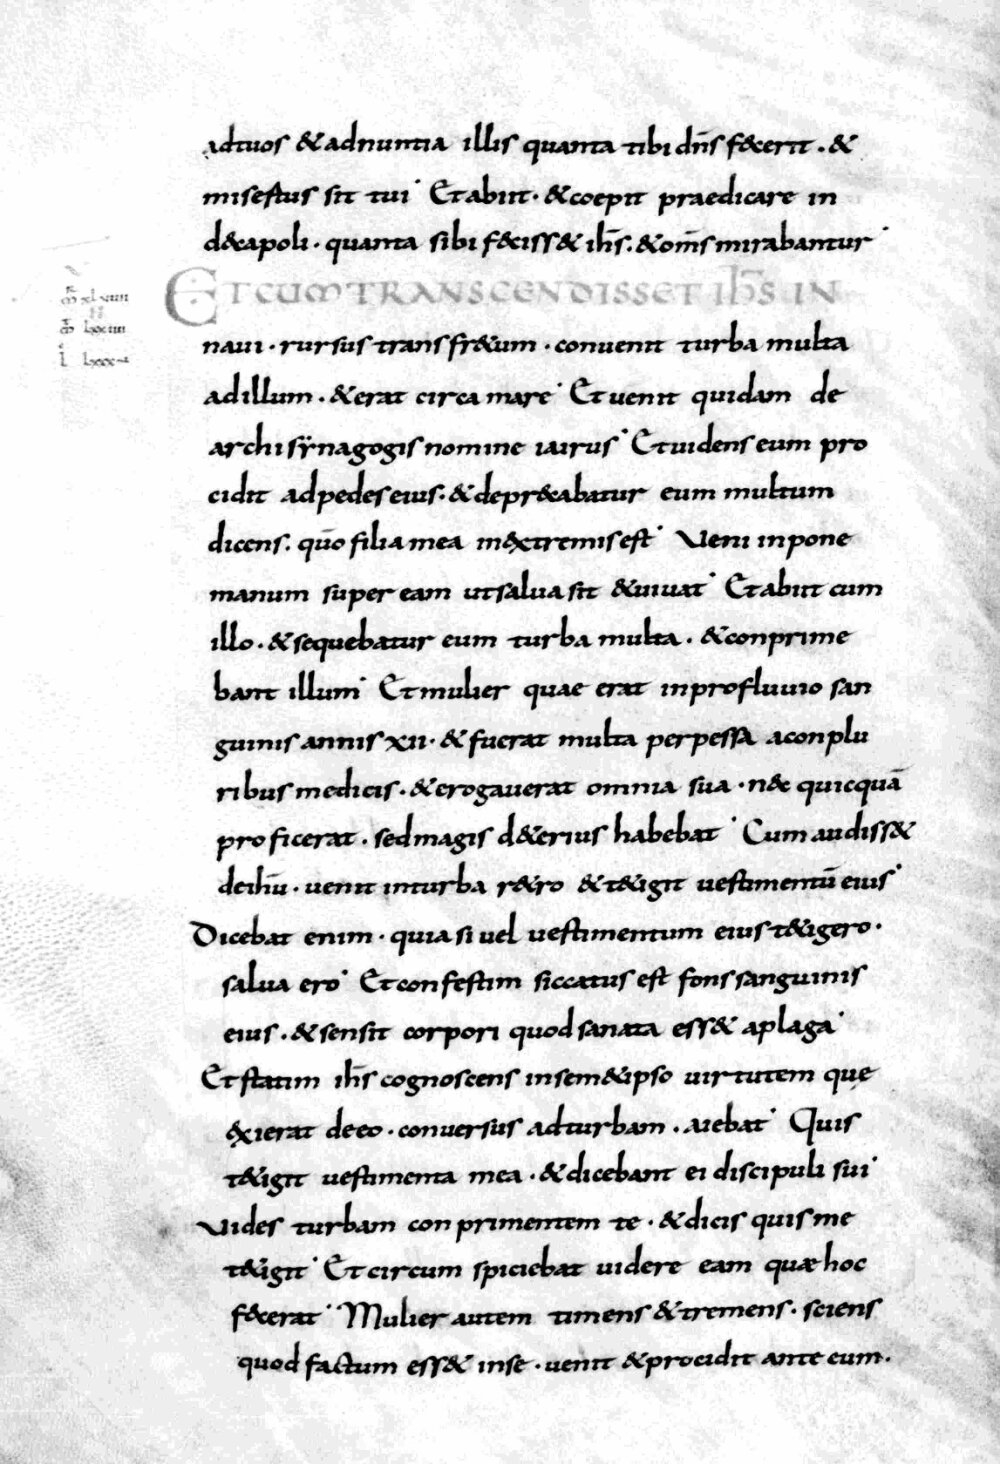 adtuos & adnuntia illis quanta tibi dn̄s f&cerit . &
misestus sit tui Et abiit . & coepit praedicare in
d&capoli . quanta sibi f&ciss& ih̄s . & om̄s mirabantur
ET CUM TRANSCENDISSET IH̄S IN
naui . rursus trans fr&um . conuenit turba multa
ad illum . & erat circa mare Et uenit quidam de
archisynagogis nomine iairus Et uidens eum pro
cidit ad pedes eius . & depr&cabatur eum multum
dicens . quō filia mea in&xtremis est Veni inpone
manum super eam ut salua sit & uiuat Et abiit cum
illo . & sequebatur eum turba multa . & conprime
bant illum Et mulier quae erat in profluuio san
guinis annis xii . & fuerat multa perpessa a conplu
ribus medicis . & erogauerat omnia sua . n&c quicquā
proficerat . sed magis d&erius habebat Cum audiss&
de ih̄u . uenit in turba r&ro & t&igit uestimentū eius
Dicebat enim . quia si uel uestimentum eius t&igero .
salua ero Et confestim siccatus est fons sanguinis
eius . & sensit corpori quod sanata ess& a plaga
Et statim ih̄s cognoscens in sem&ipso uirtutem quę
&xierat de eo . conuersus ad turbam . aiebat Quis
t&igit uestimenta mea . & dicebant ei discipuli sui
Vides turbam conprimentem te . & dicis quis me
t&igit Et circum spiciebat uidere eam quæ hoc
f&cerat Mulier autem timens & tremens . sciens
quod factum ess& in se . uenit & procidit ante eum .